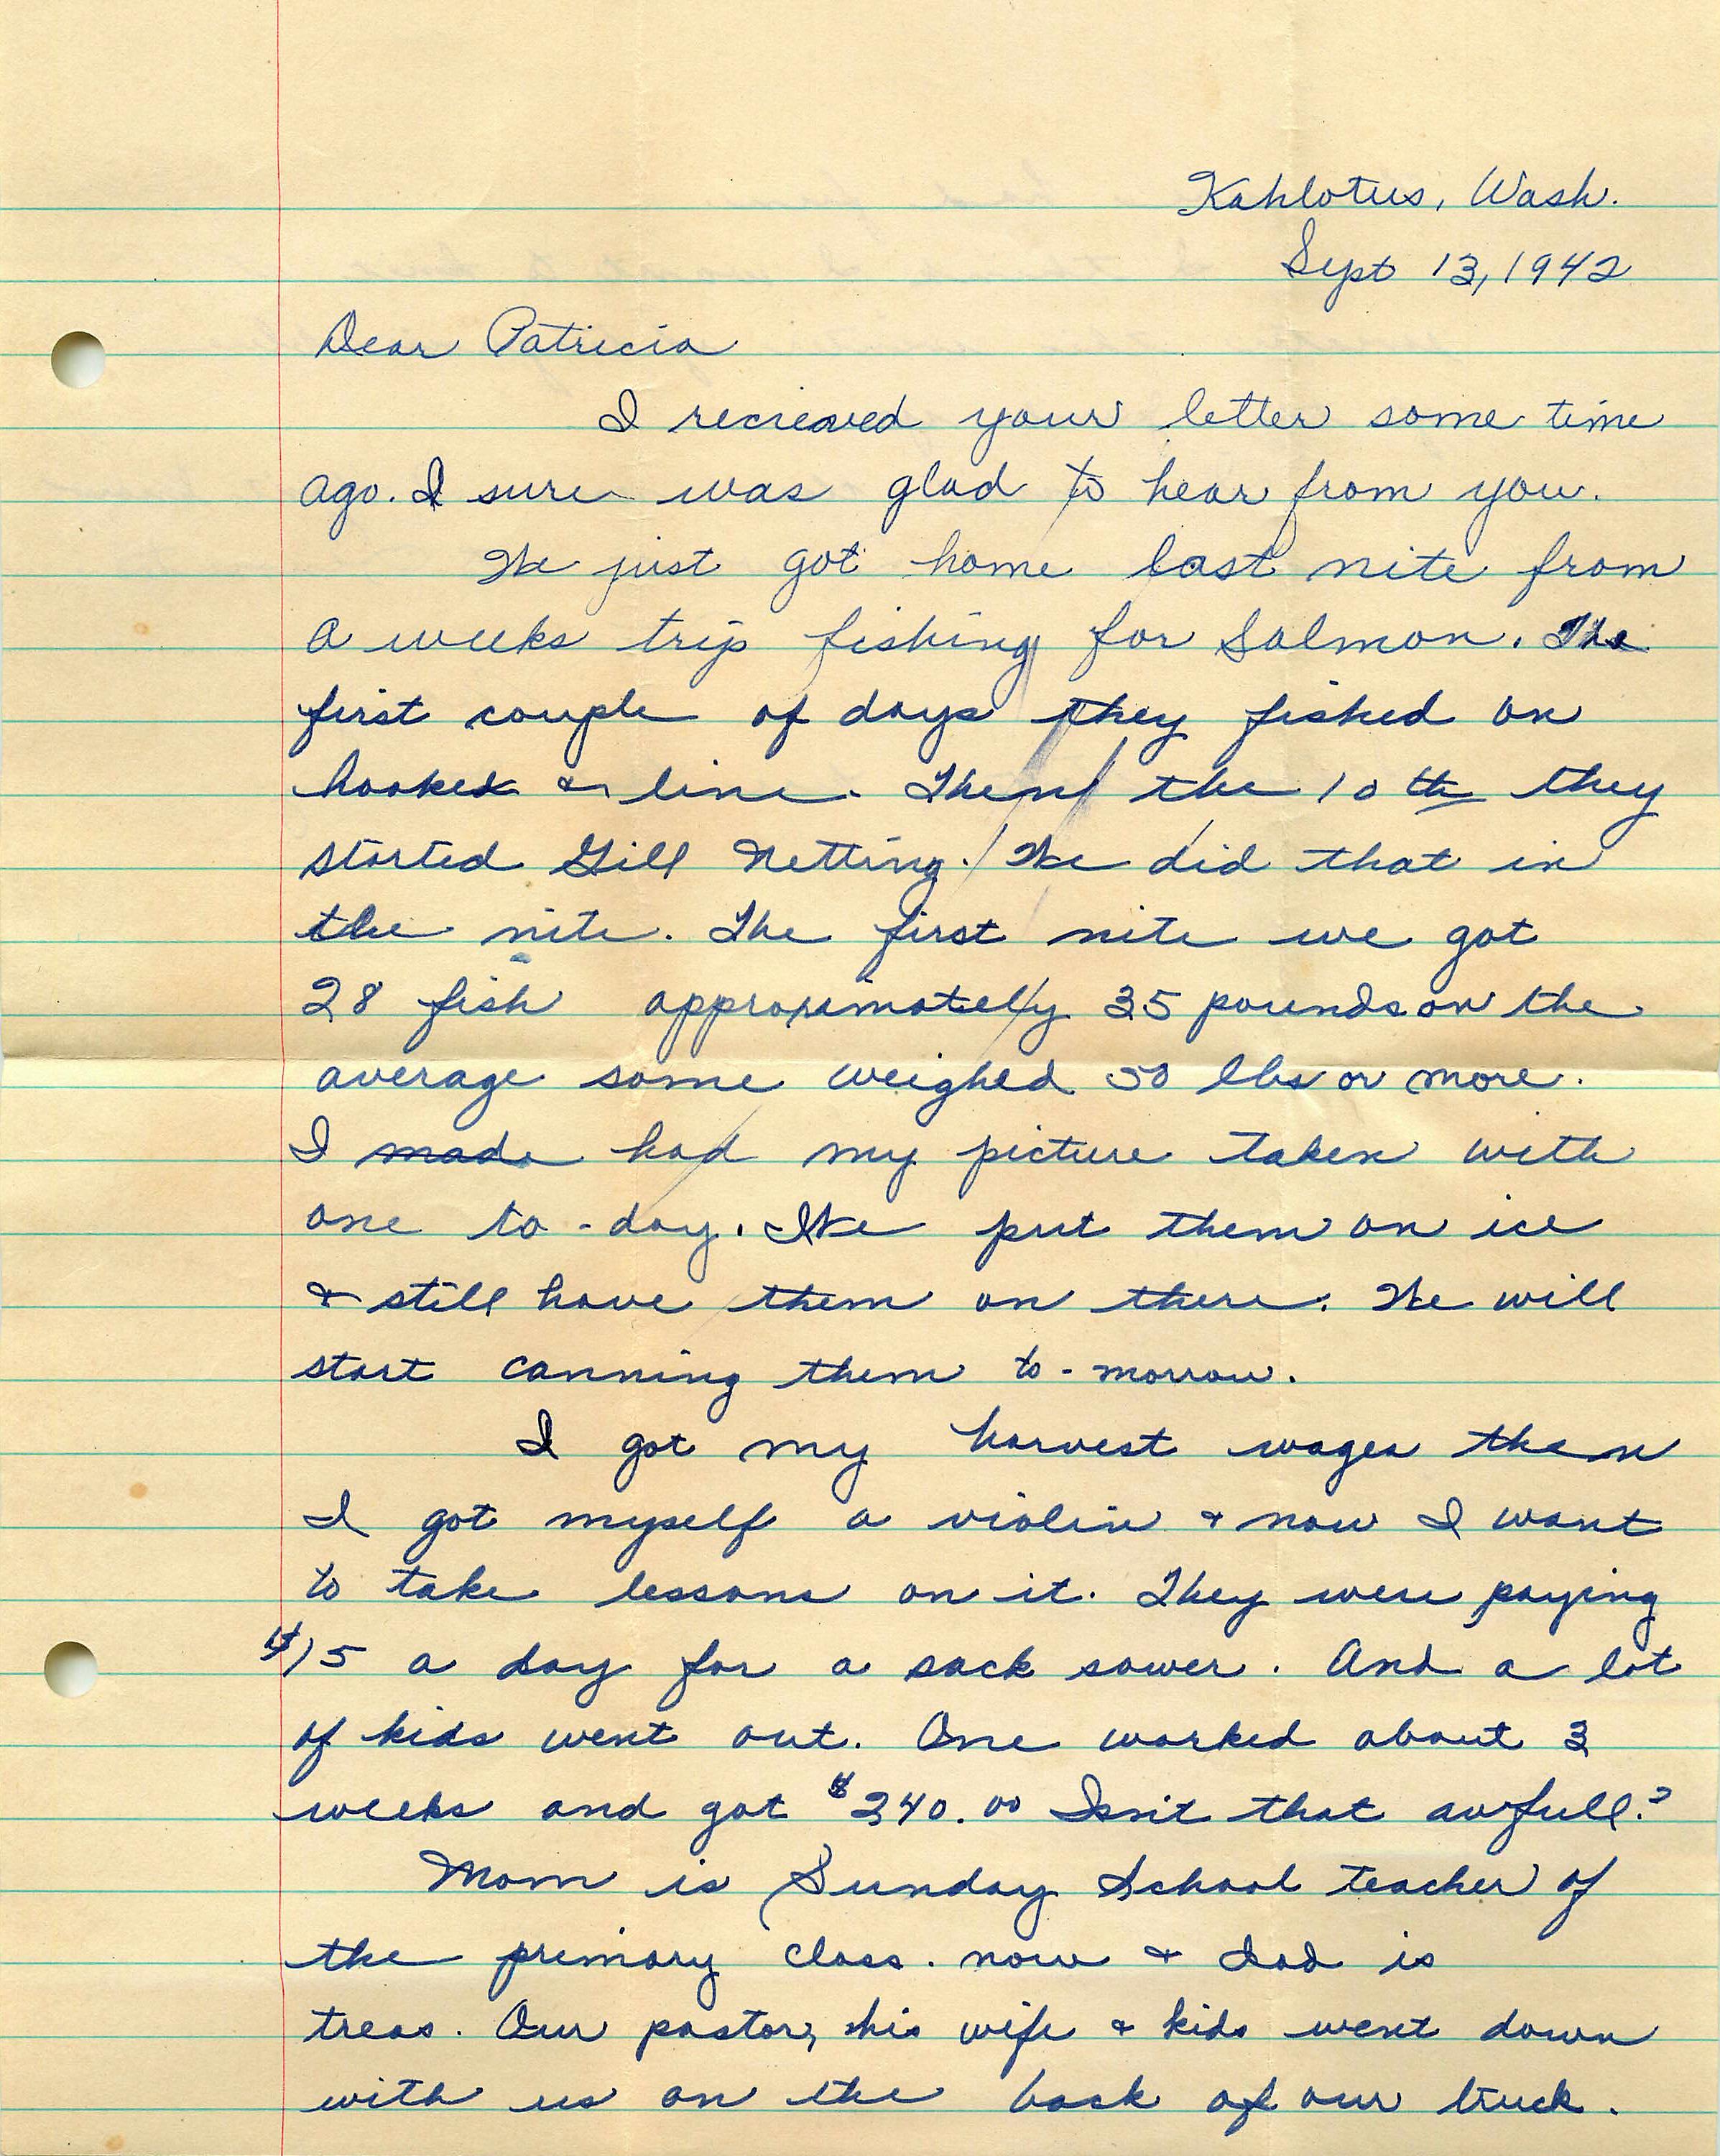 Kahlotus, Wash.
Sept 13, 1942
Dear Patricia
I recieaved your letter some time
ago. I sure was glad to hear from you.
We just got home last nite from
a weeks trip fishing for Salmon. The
first couple of days they fished on
hooked & line. Then the 10th they
started Gill Netting. We did that in
the nite. The first nite we got
28 fish approximately 35 pounds on the
average some weighed 50 lbs or more.
I made had my picture taken with
one to-day. We put them on ice
& still have them on there. We will
start canning them to-morrow.
I got my harvest wages then
I got myself a violin & now I want
to take lessons on it. They were paying
$15 a day for a sack sower. And a lot
of kids went out. One worked about 3
weeks and got $340.00 Isn't that awfull?
Mom is Sunday School teacher of
the primary class. now & Dad is
treas. Our pastor, his wife & kids went down
with us on the back of our truck.